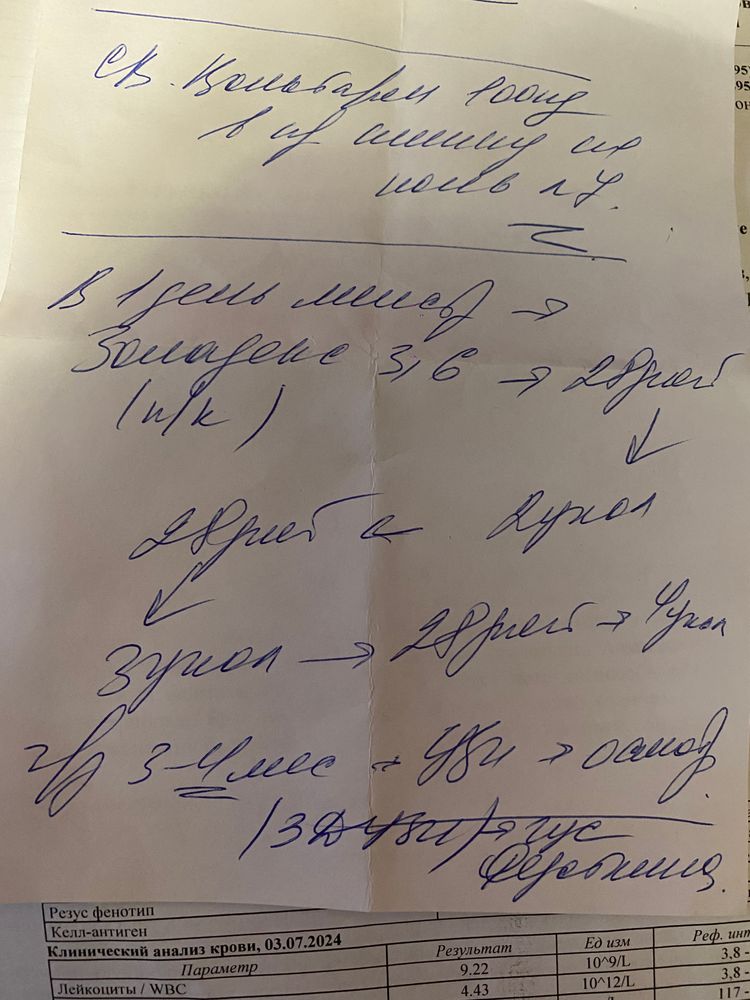 св. Вольтарен 100мг
в пр. кишку на
ночь N 7.
В 1 день менстр →
Золадекс 3,6 → 28 дней
(п/к)
28 дней ← 2 укол
3 укол → 28 дней → 4 укол
ч/з 3-4 мес → УЗИ → осмотр
(3D УЗИ) → гус
95
95
ОН
Резус фенотип
Келл-антиген
Клинический анализ крови, 03.07.2024
Параметр Результат Ед изм Реф. инт
Лейкоциты / WBC 9.22 10^9/L 3,8 -
4.43 10^12/L 3,8 -
117 -